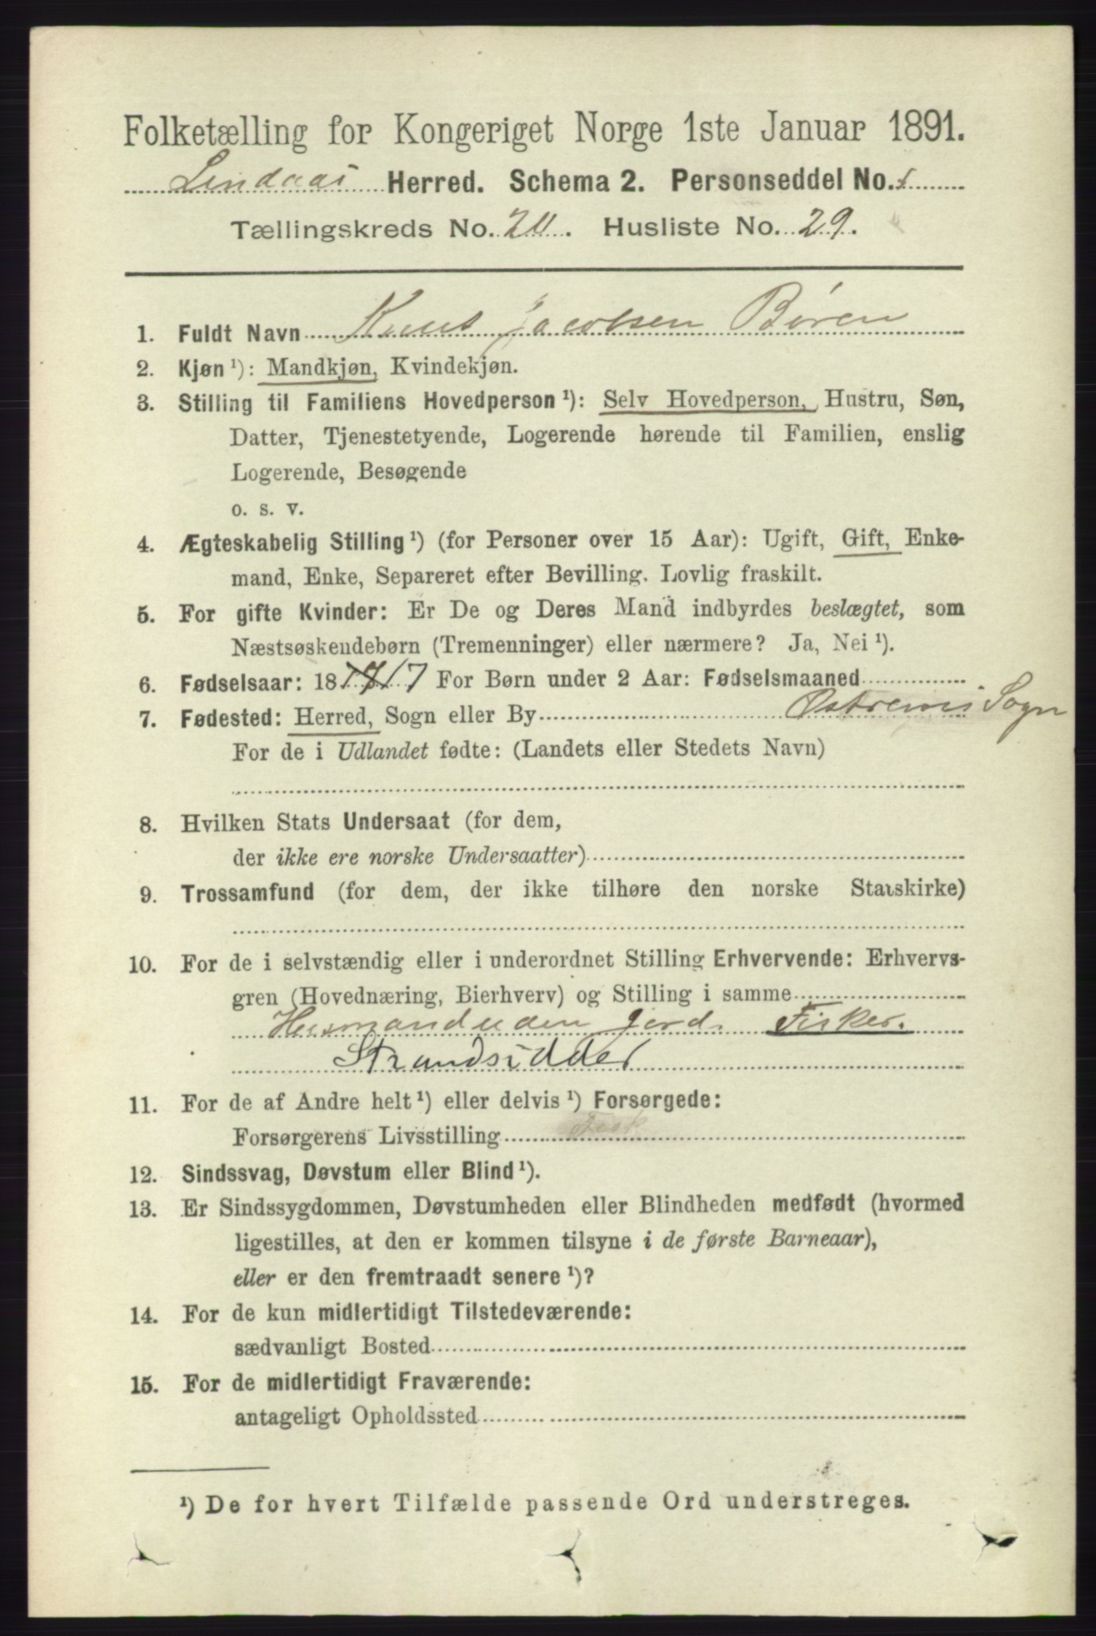 Folketælling for Kongeriget Norge 1ste Januar 1891.
Lindaas Herred. Schema 2. Personseddel No. 1
Tællingskreds No. 20. Husliste No. 29.
1. Fuldt Navn Knut Jacobsen Børen
2. Kjøn ¹): Mandkjøn, Kvindekjøn.
3. Stilling til Familiens Hovedperson ¹): Selv Hovedperson, Hustru, Søn,
Datter, Tjenestetyende, Logerende hørende til Familien, enslig
Logerende, Besøgende
o. s. v.
4. Ægteskabelig Stilling ¹) (for Personer over 15 Aar): Ugift, Gift, Enke-
mand, Enke, Separeret efter Bevilling. Lovlig fraskilt.
5. For gifte Kvinder: Er De og Deres Mand indbyrdes beslægtet, som
Næstsøskendebørn (Tremenninger) eller nærmere? Ja, Nei ¹).
6. Fødselsaar: 18 17 For Børn under 2 Aar: Fødselsmaaned
7. Fødested: Herred, Sogn eller By Østreims Sogn
For de i Udlandet fødte: (Landets eller Stedets Navn)
8. Hvilken Stats Undersaat (for dem,
der ikke ere norske Undersaatter)
9. Trossamfund (for dem, der ikke tilhøre den norske Statskirke)
10. For de i selvstændig eller i underordnet Stilling Erhvervende: Erhvervs-
gren (Hovednæring, Bierhverv) og Stilling i samme
Husmand uden Jord. Fisker.
Strandsidder
11. For de af Andre helt ¹) eller delvis ¹) Forsørgede:
Forsørgerens Livsstilling
12. Sindssvag, Døvstum eller Blind ¹).
13. Er Sindssygdommen, Døvstumheden eller Blindheden medfødt (hvormed
ligestilles, at den er kommen tilsyne i de første Barneaar),
eller er den fremtraadt senere ¹)?
14. For de kun midlertidigt Tilstedeværende:
sædvanligt Bosted
15. For de midlertidigt Fraværende:
antageligt Opholdssted
¹) De for hvert Tilfælde passende Ord understreges.